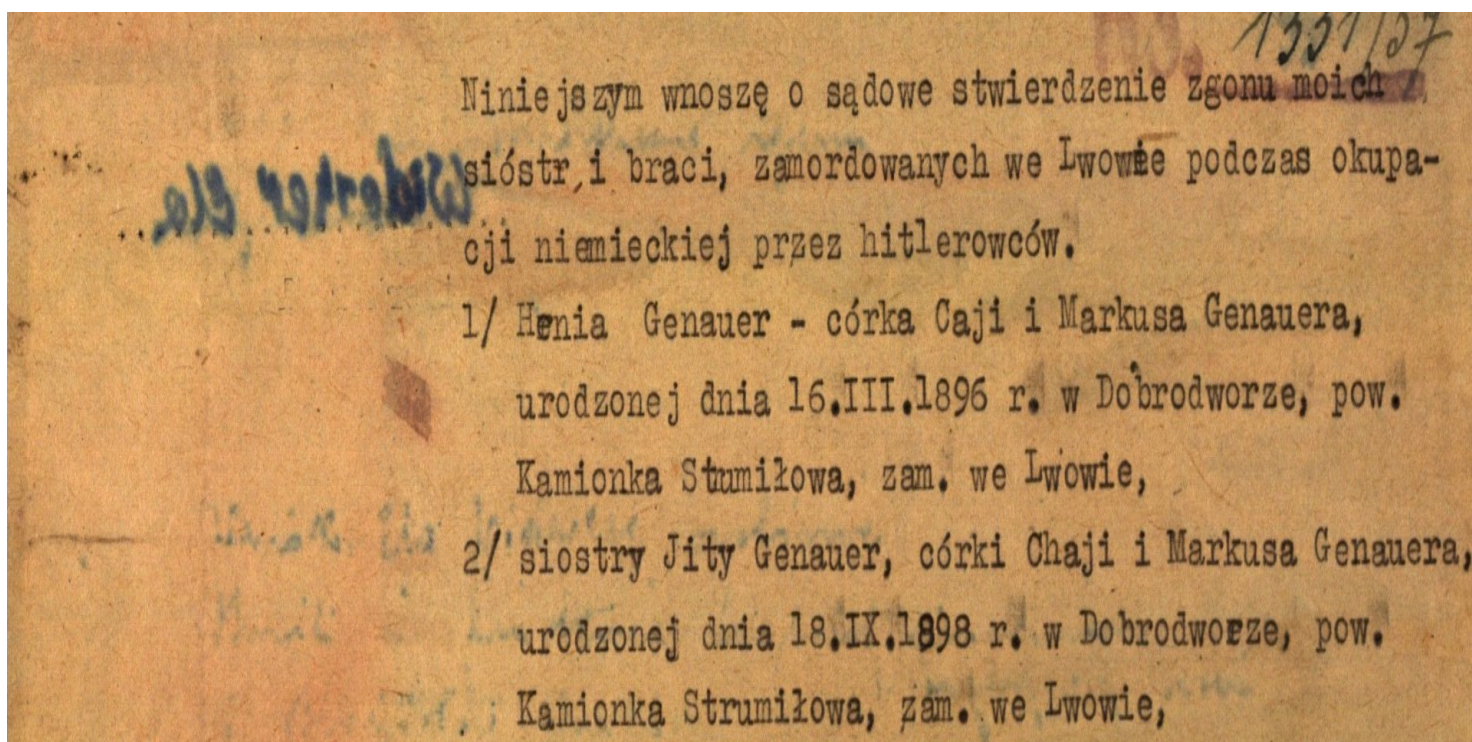 1331/57
Niniejszym wnoszę o sądowe stwierdzenie zgonu moich
sióstr, i braci, zamordowanych we Lwowie podczas okupa-
cji niemieckiej przez hitlerowców.
1/ Henia Genauer - córka Caji i Markusa Genauera,
urodzonej dnia 16.III.1896 r. w Dobrodworze, pow.
Kamionka Stumiłowa, zam. we Lwowie,
2/ siostry Jity Genauer, córki Chaji i Markusa Genauera,
urodzonej dnia 18.IX.1898 r. w Dobrodworze, pow.
Kamionka Strumiłowa, zam. we Lwowie,